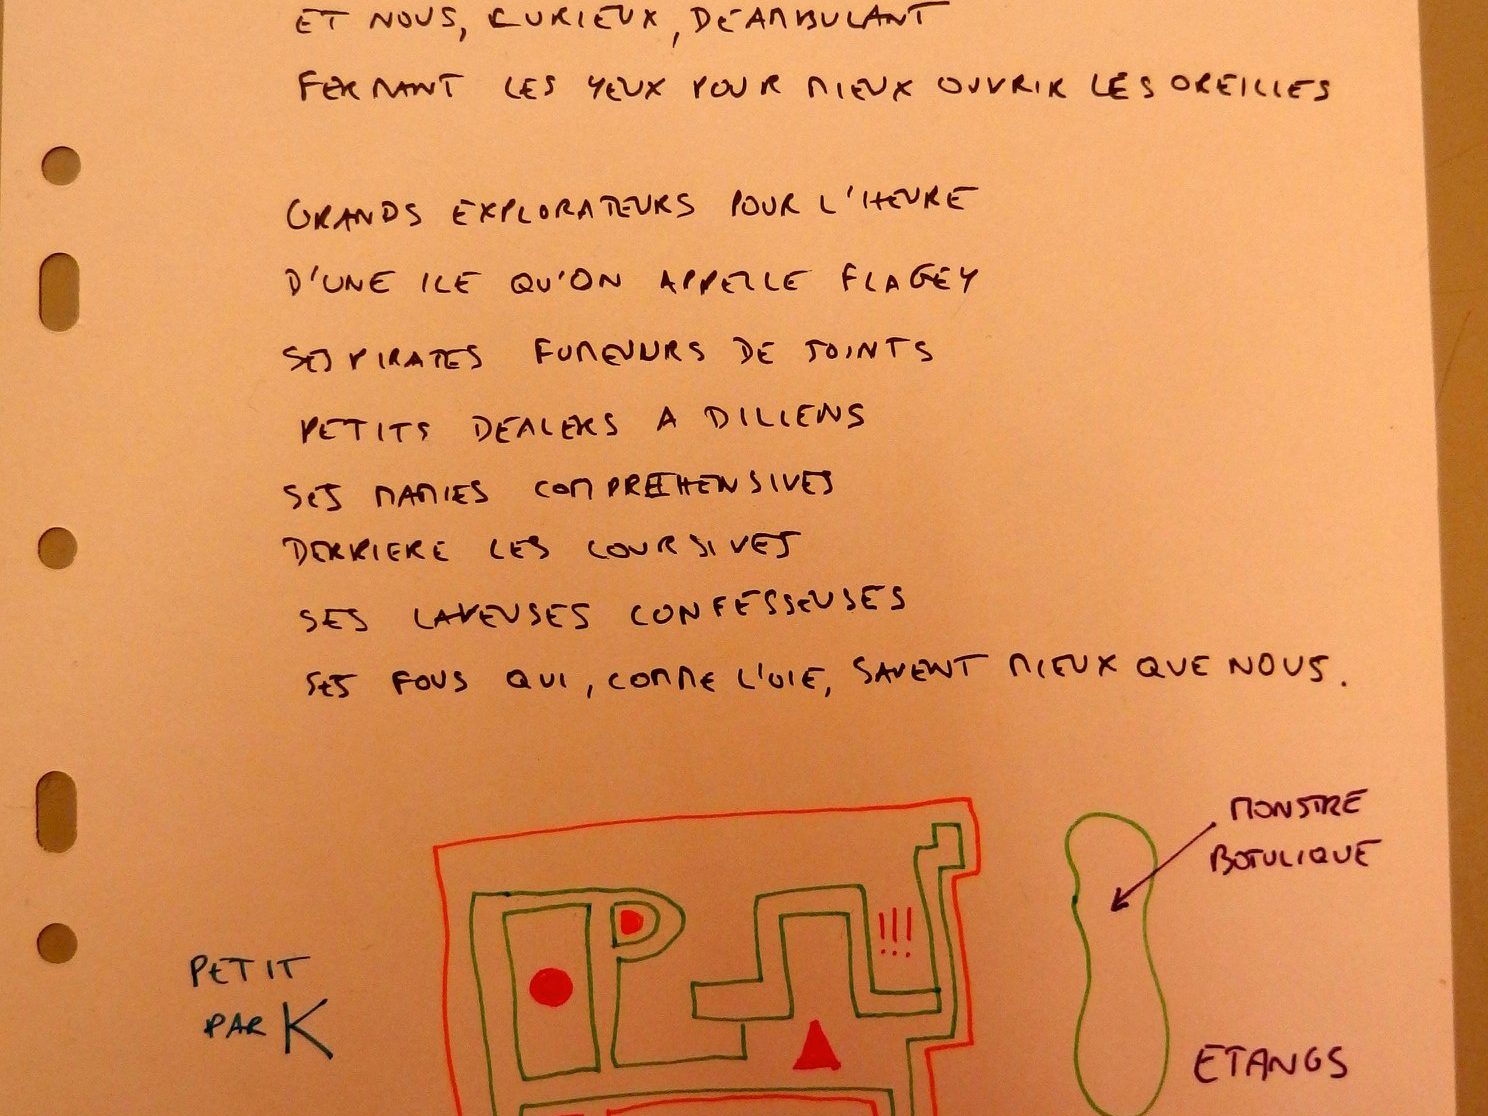 ET NOUS, CURIEUX, DEAMBULANT
FERMANT LES YEUX POUR MIEUX OUVRIR LES OREILLES
GRANDS EXPLORATEURS POUR L'HEURE
D'UNE ILE QU'ON APPELLE FLAGEY
SES PIRATES FUMEURS DE JOINTS
PETITS DEALERS A DILLENS
SES MAMIES COMPREHENSIVES
DERRIERE LES COURSIVES
SES LAVEUSES CONFESSEUSES
SES FOUS QUI, COMME L'OIE, SAVENT MIEUX QUE NOUS.
MONSTRE
BOTULIQUE
!!!
PETIT
PARK
ETANGS